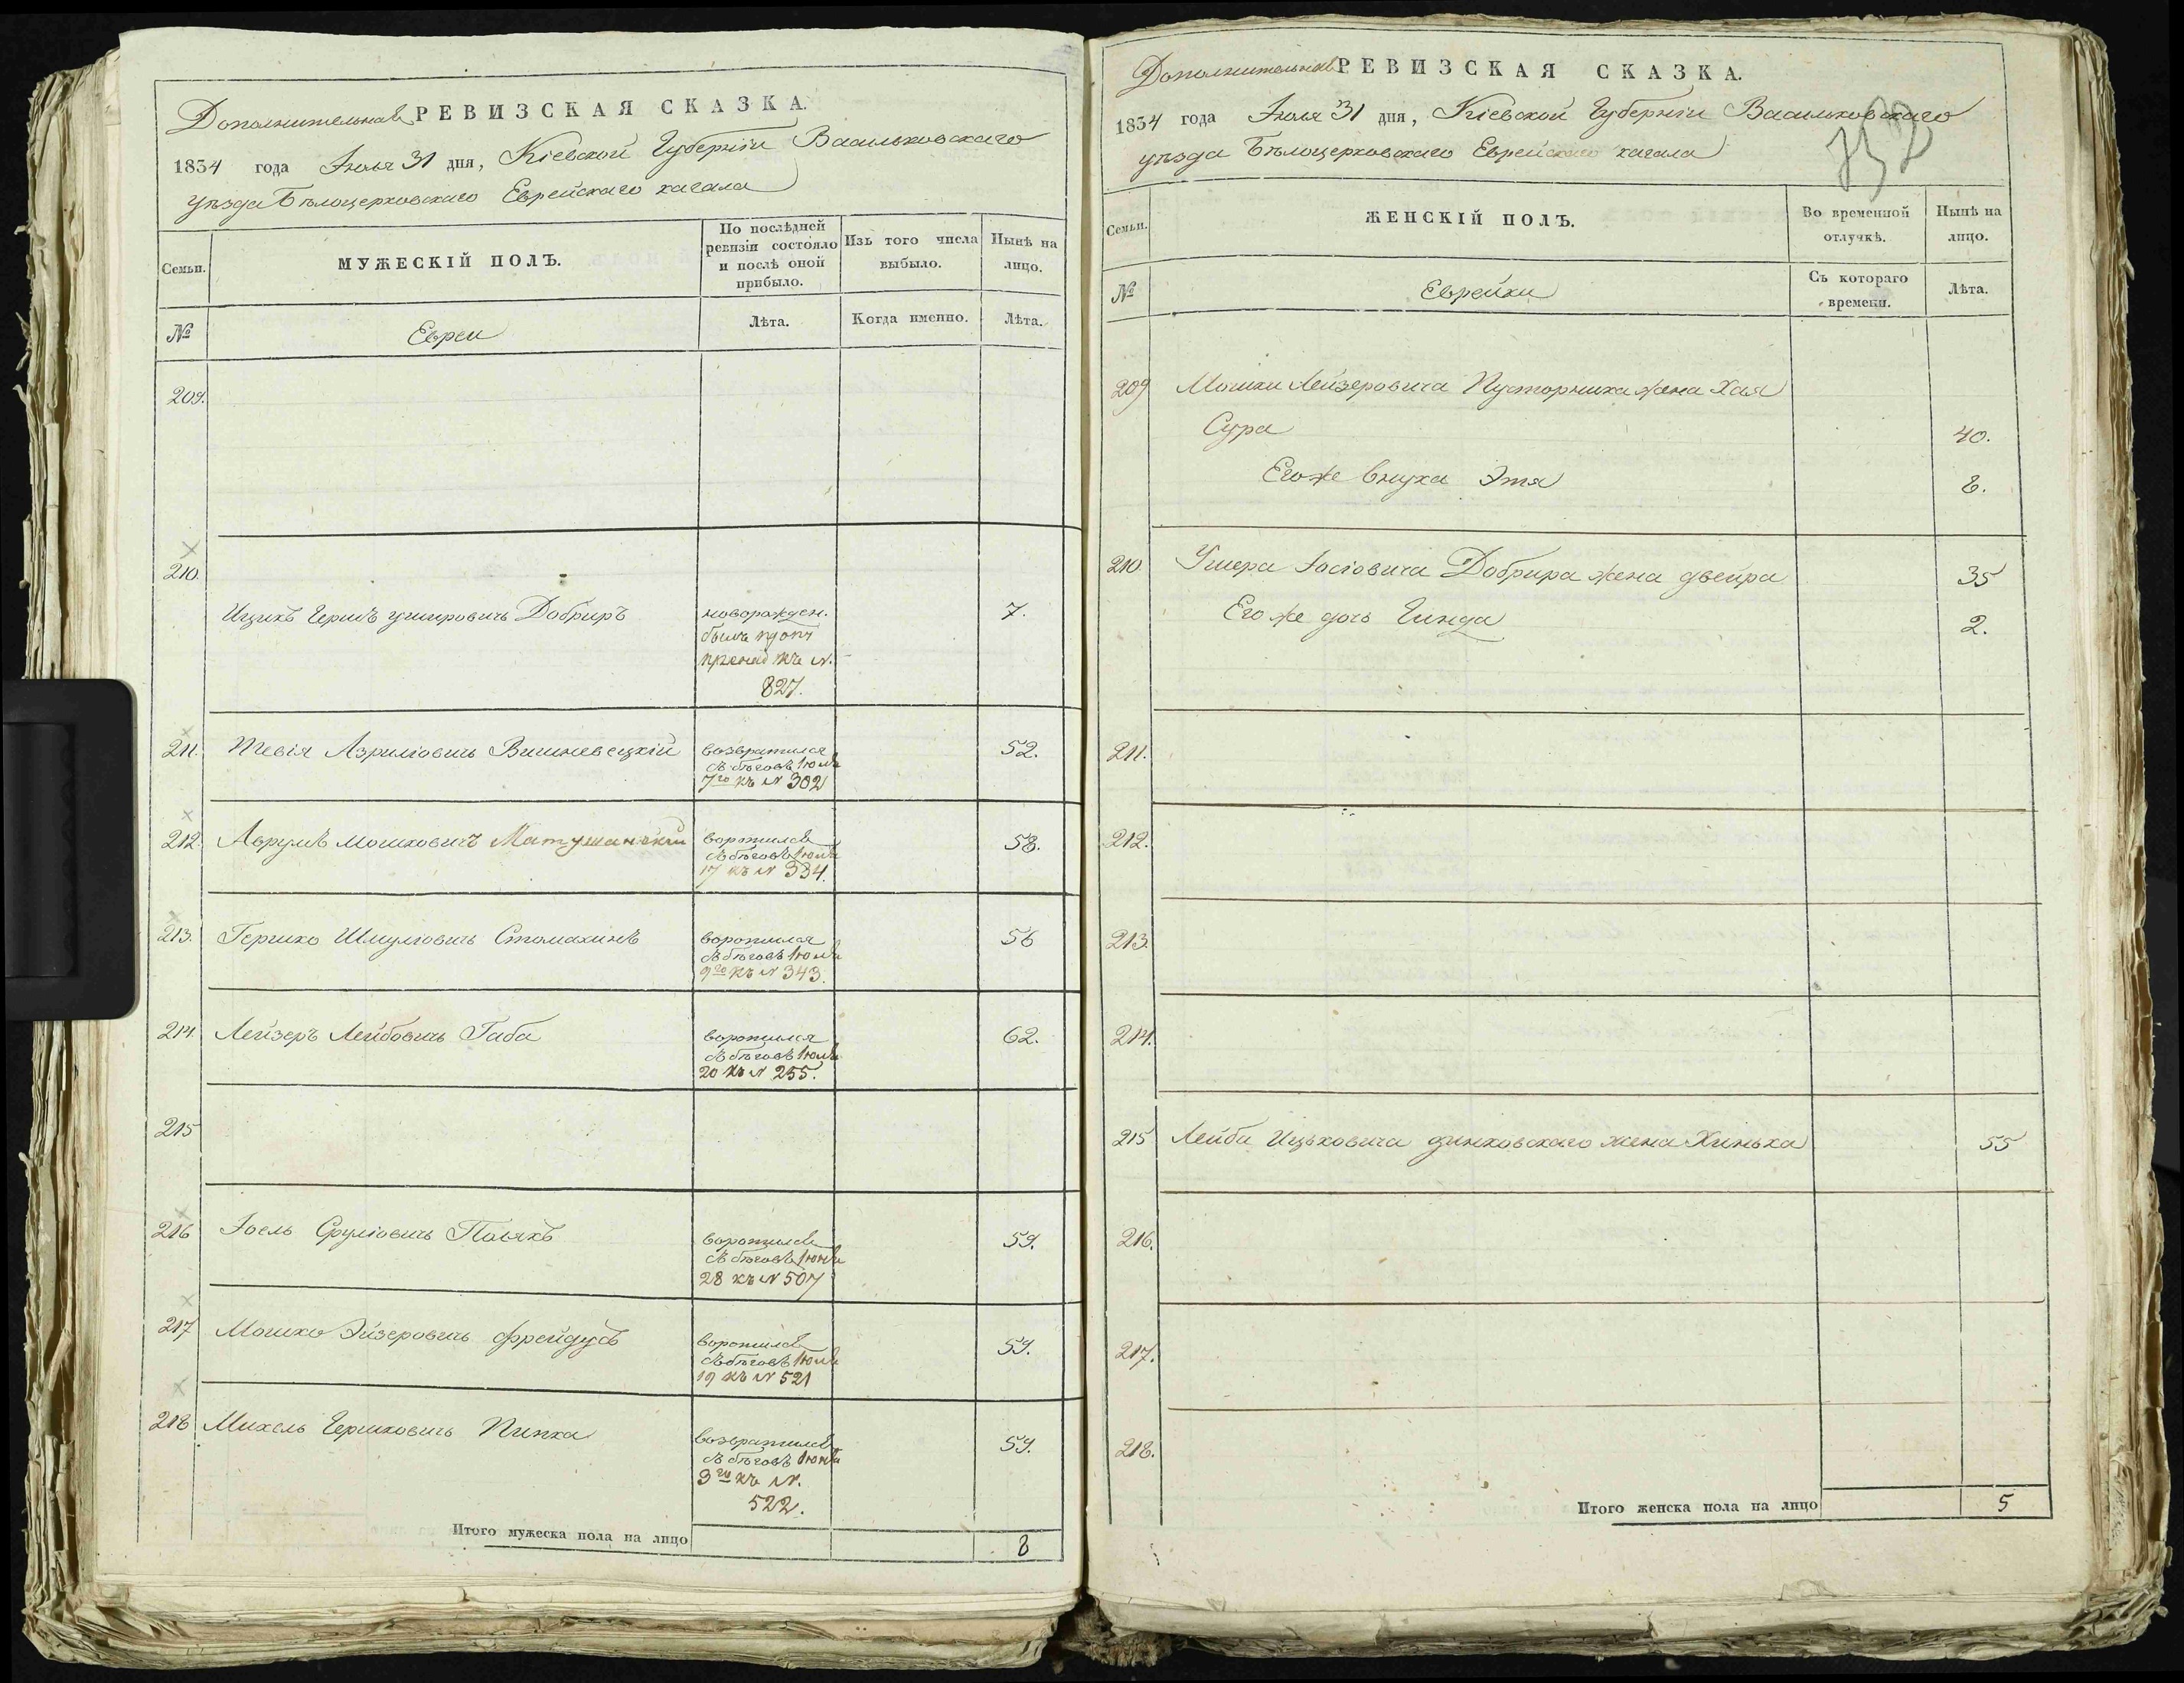 Дополнительная РЕВИЗСКАЯ СКАЗКА.
1834 года Июля 31 дня, Кіевской Губерніи Васильковскаго
уѣзда Бѣлоцерковскаго Еврейскаго кагала
Семьи.
МУЖЕСКІЙ ПОЛЪ.
По послѣдней ревизіи состояло и послѣ оной прибыло.
Изъ того числа выбыло.
Нынѣ на лицо.
№
Евреи
Лѣта.
Когда именно.
Лѣта.
209.
210.
Ицикъ Гершъ Ушеровичъ Добриръ новорожден. 7.
былъ
къ №.
827.
211. Тевія Азриліовичъ Вишневецкій возвратился 52.
съ бѣговъ Іюля
7го къ № 302
212. Аврумъ Мошковичъ Матушанскій воротился 58.
съ бѣговъ Іюля
17 къ № 334.
213. Гершко Шмуліовичъ Стомахинъ воротился 56
съ бѣговъ Іюля
9го къ № 343.
214. Лейзеръ Лейбовичъ Габа воротился 62.
съ бѣговъ Іюля
20 къ № 255.
215
216 Іосль Сруліовичъ Полякъ воротился 59.
съ бѣговъ Іюня
28 къ № 507
217 Мошко Эйзеровичъ Фрейдусъ воротился 59.
съ бѣговъ Іюля
19 къ № 521
218 Михель Гершковичъ Пипка возвратился 59.
съ бѣговъ Іюня
3го къ №.
522.
Итого мужеска пола на лицо 8
Дополнительная РЕВИЗСКАЯ СКАЗКА.
1834 года Июля 31 дня, Кіевской Губерніи Васильковскаго
уѣзда Бѣлоцерковскаго Еврейскаго кагала
Семьи.
ЖЕНСКІЙ ПОЛЪ.
Во временной отлучкѣ.
Нынѣ на лицо.
№
Еврейки
Съ котораго времени.
Лѣта.
209 Мошки Лейзеровича Пусторника жена Хая
Сура 40.
Его же внука Этя 8.
210 Ушера Іосіовича Добрира жена Двейра 35
Его же дочь Гинда 2.
211.
212.
213.
214.
215 Лейба Ицьковича Динковскаго жена Хинька 55
216.
217.
218.
Итого женска пола на лицо 5